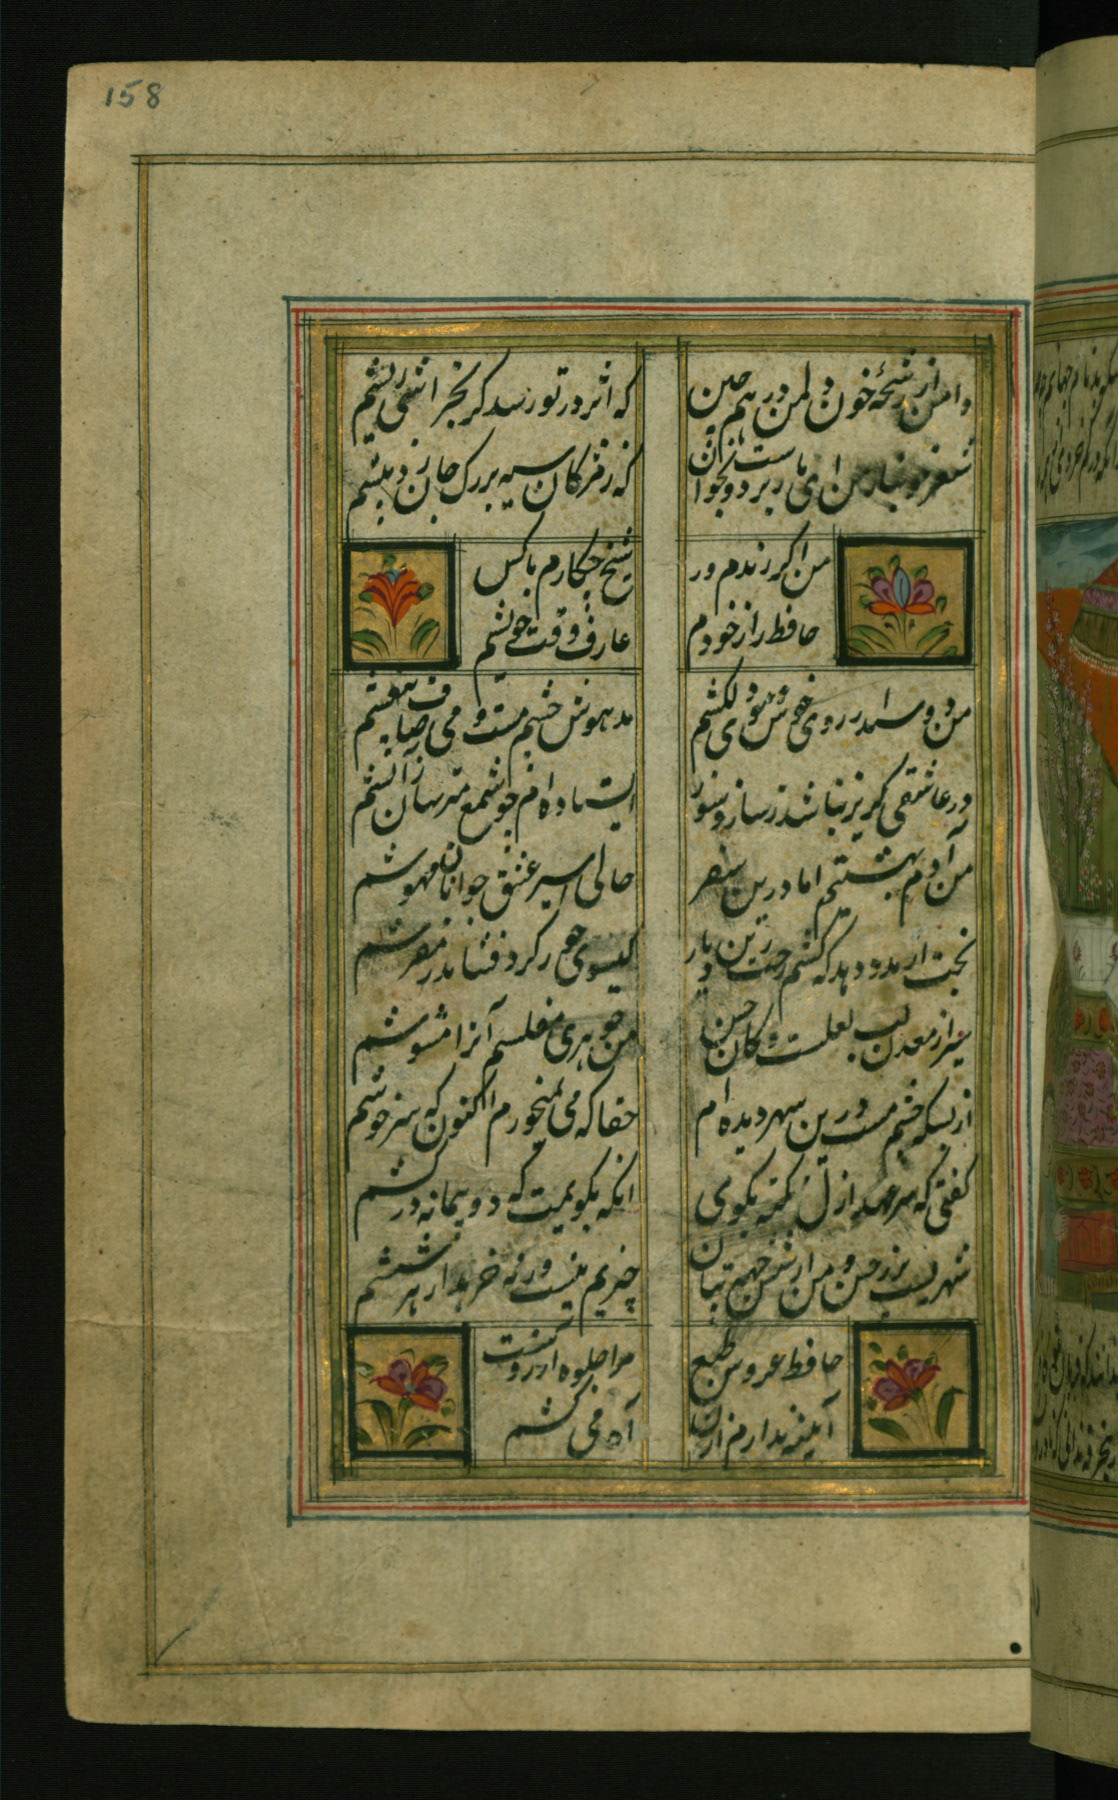 158
دامن از رشحهٔ خون دلمن درهم چین که اثر در تو رسد گر بخراشی ریشم
شعر خونبار من ای باد بر دوست بخوان که ز مژگان سیه بر رگ جان زد نیشم
من اگر رندم ور شیخ چکارم باکس
حافظ راز خودم عارف وقت خویشم
من دوستدار روی خوش و موی دلکشم مدهوش چشم مست و می صاف بیغشم
در عاشقی گریز نباشد ز ساز و سوز استاده‌ام چو شمع مترسان ز آتشم
من آدم بهشتیم اما درین سفر حالی اسیر عشق جوانان مهوشم
بخت ار مدد دهد که کشم رخت زین دیار گیسوی حور گرد فشاند ز مفرشم
شیراز معدن لب لعلست و کان حسن من جوهری مفلسم آنرا مشوشم
از بسکه چشم مست درین شهر دیده‌ام حقا که می نمیخورم اکنون که سرخوشم
گفتی که سر عهد ازل نکته بگوی آنگه بگویمت که دو پیمانه درکشم
شهریست پرز حسن و من از شش جهت چیزیم نیست ورنه خریدار هر ششم
حافظ عروس طبع مرا جلوه آرزوست
آیینه ندارم از آن آه می کشم